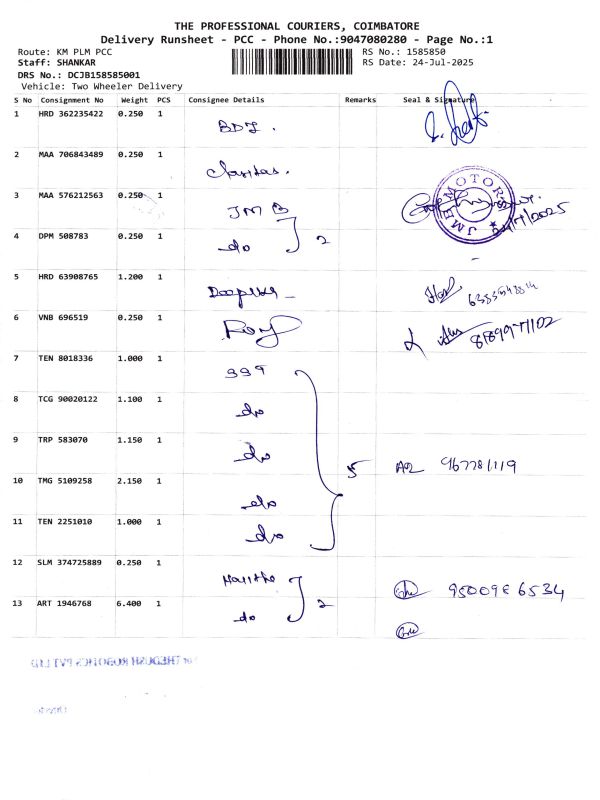 THE PROFESSIONAL COURIERS, COIMBATORE
Delivery Runsheet - PCC - Phone No.:9047080280 - Page No.:1
Route: KM PLM PCC RS No.: 1585850
Staff: SHANKAR RS Date: 24-Jul-2025
DRS No.: DCJB158585001
Vehicle: Two Wheeler Delivery
S No Consignment No Weight PCS Consignee Details Remarks Seal & Signature
1 HRD 362235422 0.250 1
2 MAA 706843489 0.250 1
3 MAA 576212563 0.250 1 JM B
JMB MOTORS
4 DPM 508783 0.250 1 do 2
5 HRD 63908765 1.200 1
6 VNB 696519 0.250 1 Roy
7 TEN 8018336 1.000 1 999
8 TCG 90020122 1.100 1 do
9 TRP 583070 1.150 1 do 5
10 TMG 5109258 2.150 1 do
11 TEN 2251010 1.000 1 do
12 SLM 374725889 0.250 1
13 ART 1946768 6.400 1 do 2